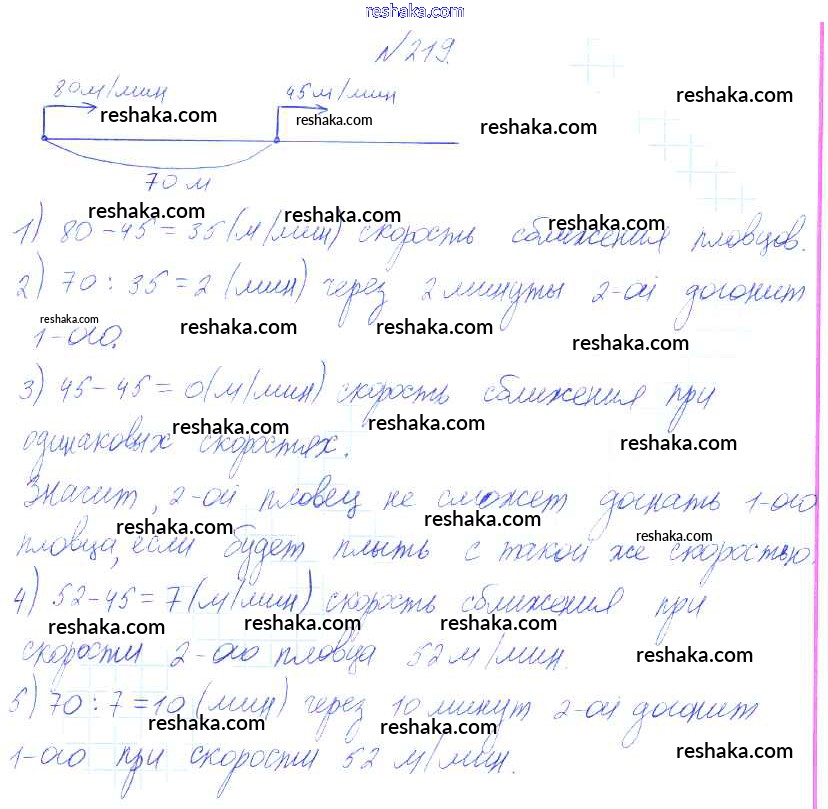 reshaka.com
№219.
80м/мин 45м/мин
reshaka.com
reshaka.com reshaka.com
reshaka.com
70 м
reshaka.com reshaka.com reshaka.com
1) 80-45=35(м/мин) скорость сближения пловцов.
2) 70:35=2 (мин) через 2 минуты 2-ой догонит
reshaka.com reshaka.com reshaka.com reshaka.com
1-ого.
3) 45-45=0(м/мин) скорость сближения при
reshaka.com reshaka.com reshaka.com
одинаковых скоростях.
Значит, 2-ой пловец не сможет догнать 1-ого
reshaka.com reshaka.com reshaka.com
пловца, если будет плыть с такой же скоростью.
4) 52-45=7(м/мин) скорость сближения при
reshaka.com reshaka.com reshaka.com
скорости 2-ого пловца 52м/мин.
reshaka.com
5) 70:7=10 (мин) через 10 минут 2-ой догонит
reshaka.com reshaka.com
1-ого при скорости 52 м/мин.
reshaka.com